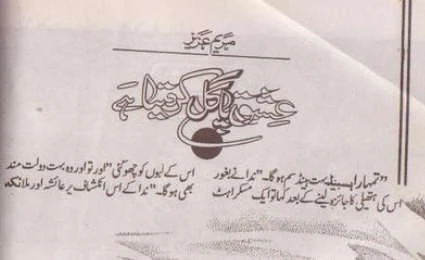 مریم عزیز
عشق پاگل کر دیتا ہے
”تمہارا ہسبینڈ بہت ہینڈسم ہوگا۔“ ندا نے بغور
اس کی ہتھیلی کا جائزہ لینے کے بعد کہا تو ایک مسکراہٹ
اس کے لبوں کو چھو گئی ”اور تو اور وہ بہت دولت مند
بھی ہوگا۔“ ندا کے اس انکشاف پر عائشہ اور ملائکہ